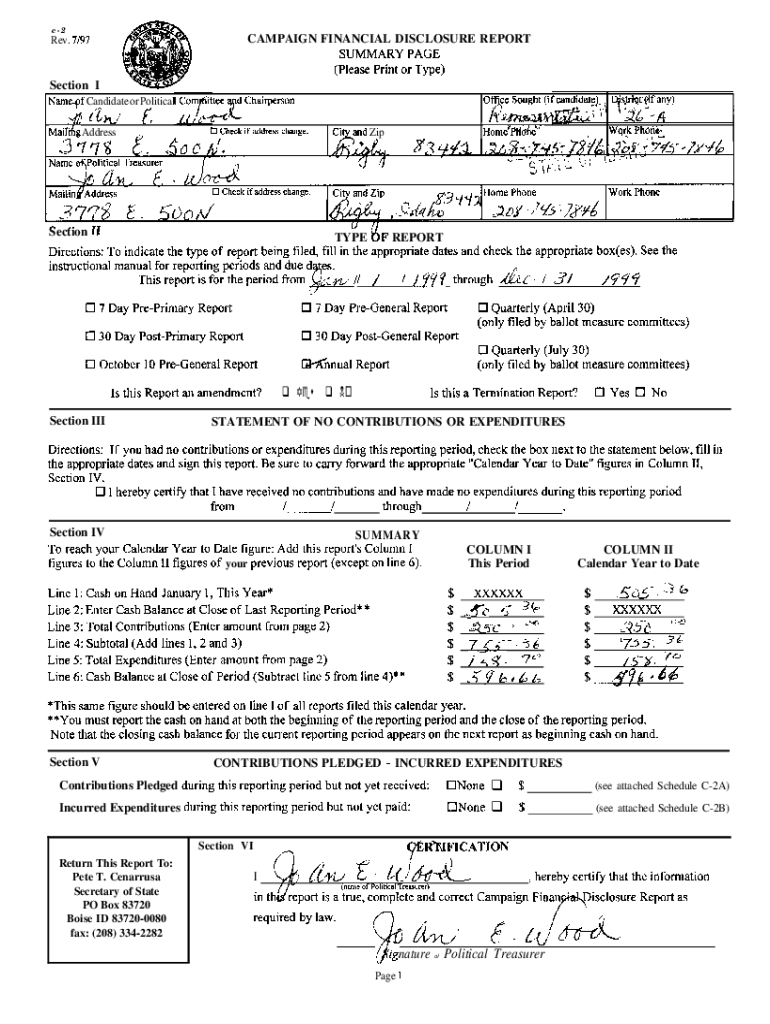 c-2
Rev. 7/97
CAMPAIGN FINANCIAL DISCLOSURE REPORT
SUMMARY PAGE
(Please Print or Type)
Section I
Name of Candidate or Political Committee and Chairperson Office Sought (if candidate) District (if any)
Jo An E. Wood Representative 26-A
Mailing Address ☐ Check if address change. City and Zip Home Phone Work Phone
3778 E. 500 N. Rigby 83442 208-745-7846 208-745-7846
Name of Political Treasurer STATE OF
Jo An E. Wood
Mailing Address ☐ Check if address change. City and Zip Home Phone Work Phone
3778 E 500N Rigby, Idaho 83442 208-745-7846
Section II
TYPE OF REPORT
Directions: To indicate the type of report being filed, fill in the appropriate dates and check the appropriate box(es). See the
instructional manual for reporting periods and due dates.
This report is for the period from Jan / 1 / 1999 through Dec. / 31 1999
☐ 7 Day Pre-Primary Report ☐ 7 Day Pre-General Report ☐ Quarterly (April 30)
(only filed by ballot measure committees)
☐ 30 Day Post-Primary Report ☐ 30 Day Post-General Report
☐ Quarterly (July 30)
☐ October 10 Pre-General Report ☑ Annual Report (only filed by ballot measure committees)
Is this Report an amendment? ☐ ☐ Is this a Termination Report? ☐ Yes ☐ No
Section III STATEMENT OF NO CONTRIBUTIONS OR EXPENDITURES
Directions: If you had no contributions or expenditures during this reporting period, check the box next to the statement below, fill in
the appropriate dates and sign this report. Be sure to carry forward the appropriate "Calendar Year to Date" figures in Column II,
Section IV.
☐ I hereby certify that I have received no contributions and have made no expenditures during this reporting period
from / / through / / .
Section IV SUMMARY
To reach your Calendar Year to Date figure: Add this report's Column I COLUMN I COLUMN II
figures to the Column II figures of your previous report (except on line 6). This Period Calendar Year to Date
Line 1: Cash on Hand January 1, This Year* $ XXXXXX $ 505.36
Line 2: Enter Cash Balance at Close of Last Reporting Period** $ 505 36 $ XXXXXX
Line 3: Total Contributions (Enter amount from page 2) $ 250.00 $ 250 00
Line 4: Subtotal (Add lines 1, 2 and 3) $ 755.36 $ 755. 36
Line 5: Total Expenditures (Enter amount from page 2) $ 158. 70 $ 158. 70
Line 6: Cash Balance at Close of Period (Subtract line 5 from line 4)** $ 596.66 $ 596.66
*This same figure should be entered on line 1 of all reports filed this calendar year.
**You must report the cash on hand at both the beginning of the reporting period and the close of the reporting period.
Note that the closing cash balance for the current reporting period appears on the next report as beginning cash on hand.
Section V CONTRIBUTIONS PLEDGED - INCURRED EXPENDITURES
Contributions Pledged during this reporting period but not yet received: ☐None ☐ $ (see attached Schedule C-2A)
Incurred Expenditures during this reporting period but not yet paid: ☐None ☐ $ (see attached Schedule C-2B)
Return This Report To:
Pete T. Cenarrusa
Secretary of State
PO Box 83720
Boise ID 83720-0080
fax: (208) 334-2282
Section VI CERTIFICATION
I Jo An E. Wood, hereby certify that the information
(name of Political Treasurer)
in this report is a true, complete and correct Campaign Financial Disclosure Report as
required by law.
Jo An E. Wood
Signature of Political Treasurer
Page 1